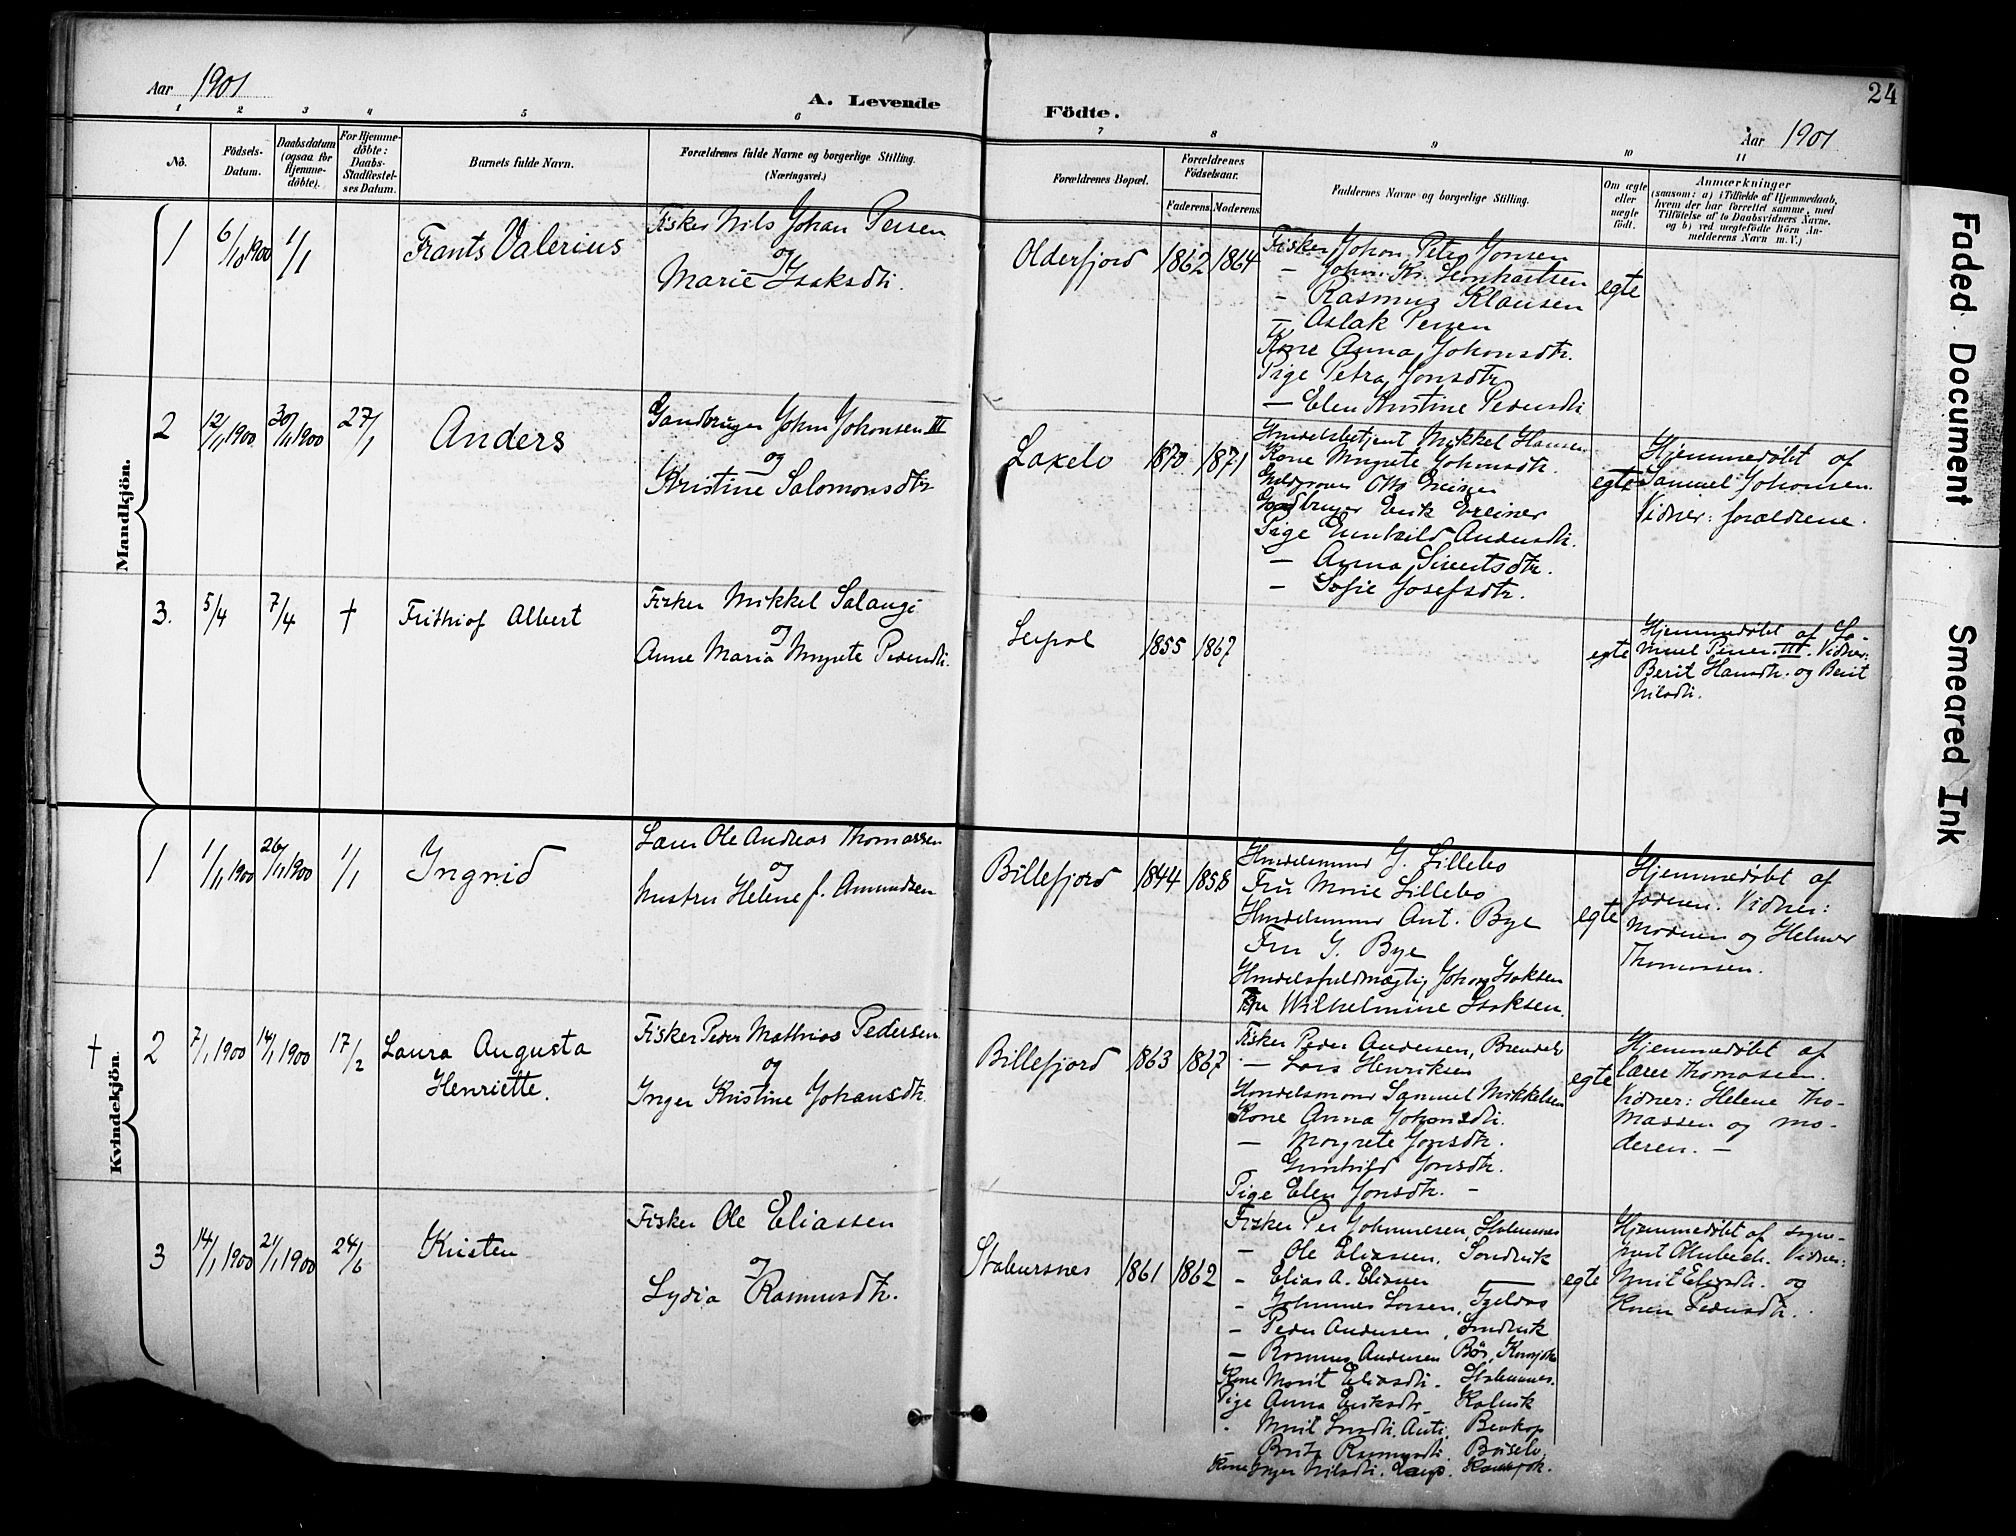 Aar 1901
A. Levende
Födte.
Aar 1901
24
1 2 3 4 5 6 7 8 9 10 11
No.
Födsels-
Datum.
Daabsdatum
(ogsaa for
Hjemme-
döbte).
For Hjemme-
döbte:
Daabs-
Stadfæstel-
ses Datum.
Barnets fulde Navn.
Forældrenes fulde Navne og borgerlige Stilling.
(Næringsvei.)
Forældrenes Bopæl.
Forældrenes
Födselsaar.
Faderens. Moderens.
Faddernes Navne og borgerlige Stilling.
Om ægte
eller
uægte
födt.
Anmærkninger
(saasom: a) i Tilfælde af Hjemmedaab,
hvem der har forrettet samme, med
Tilföielse af to Daabsvidners Navne,
og b) ved uegtefödte Börn An-
melderens Navn m. V.)
Mandkjön.
1
6/10 1900
1/1
Frants Valerius
Fisker Nils Johan Persen
og
Marie Isaksdtr.
Olderfjord
1862
1864
Fisker Johan Peter Jonsen
— John Kr. Lenhartsen
— Rasmus Klausen
— Aslak Persen
Kone Anna Johansdtr.
Pige Petra Jonsdtr
— Elen Kristine Pedersdtr
egte
2
12/11 1900
30/11 1900
27/1
Anders
Gaardbruger John Johnsen III
og
Kristine Salomonsdtr
Laxelv
1870
1871
Handelsbetjent Mikkel Hansen
Kone Margrete Johnsdtr.
Gaardbruger Erik Greiner
Pige Gunhild Andersdtr.
— Anna Sivertsdtr.
— Sofie Josefsdtr.
egte
Hjemmedøbt af
Samuel Johansen.
Vidner: forældrene.
3.
5/4
7/4
†
Frithiof Albert
Fisker Mikkel Salangi
og
Anne Maria Margrete Pedersdtr.
Leipol
1855
1867
egte
Hjemmedøbt af Sa-
muel Persen III. Vidner:
Berit Hansdtr. og Berit
Nilsdtr.
Kvindekjön.
1
1/11 1900
26/11 1900
1/1
Ingrid
Lærer Ole Andreas Thomassen
og
hustru Helene f. Amundsen
Billefjord
1844
1858
Handelsmand G. Lillebo
Fru Marie Lillebo
Handelsmand Ant. Bye
Fru G. Bye
Handelsfuldmægtig Johan Isaksen
Fru Wilhelmine Isaksen.
egte
Hjemmedøbt af
faderen. Vidner:
moderen og Helmer
Thomassen.
†
2
7/1 1900
14/1 1900
17/2
Laura Augusta
Henriette.
Fisker Peder Mathias Pedersen
og
Inger Kristine Johansdtr.
Billefjord
1863
1867
Fisker Peder Andersen, Brendelv
— Lars Henriksen
Handelsmand Samuel Mikkelsen
Kone Anna Johansdtr.
— Margrete Jonsdtr.
Gunhild Jonsdtr.
Pige Elen Jonsdtr. —
egte
Hjemmedøbt af
lærer Thomassen.
Vidner: Helene Tho-
massen og mo-
deren. —
3
14/1 1900
21/1 1900
24/6
Kristen
Fisker Ole Eliassen
og
Lydia Rasmusdtr.
Stabursnes
1861
1862
Fisker Per Johannesen, Stabursnes
— Ole Eliassen, Sandvik
— Elias A. Eliassen —
— Johannes Larsen,
— Peder Andersen, Sandvik
— Rasmus Andersen
Kone Marit Eliasdtr. Stabursnes.
Pige Anna Eriksdtr. Kolvik
Marit
Rasmusdtr.
Kone Inger Nilsdtr.
egte
Hjemmedøbt af sogne-
prest Vidner:
Marit Eliasdtr. og
Karen Pedersdtr.
Faded Document
Smeared Ink